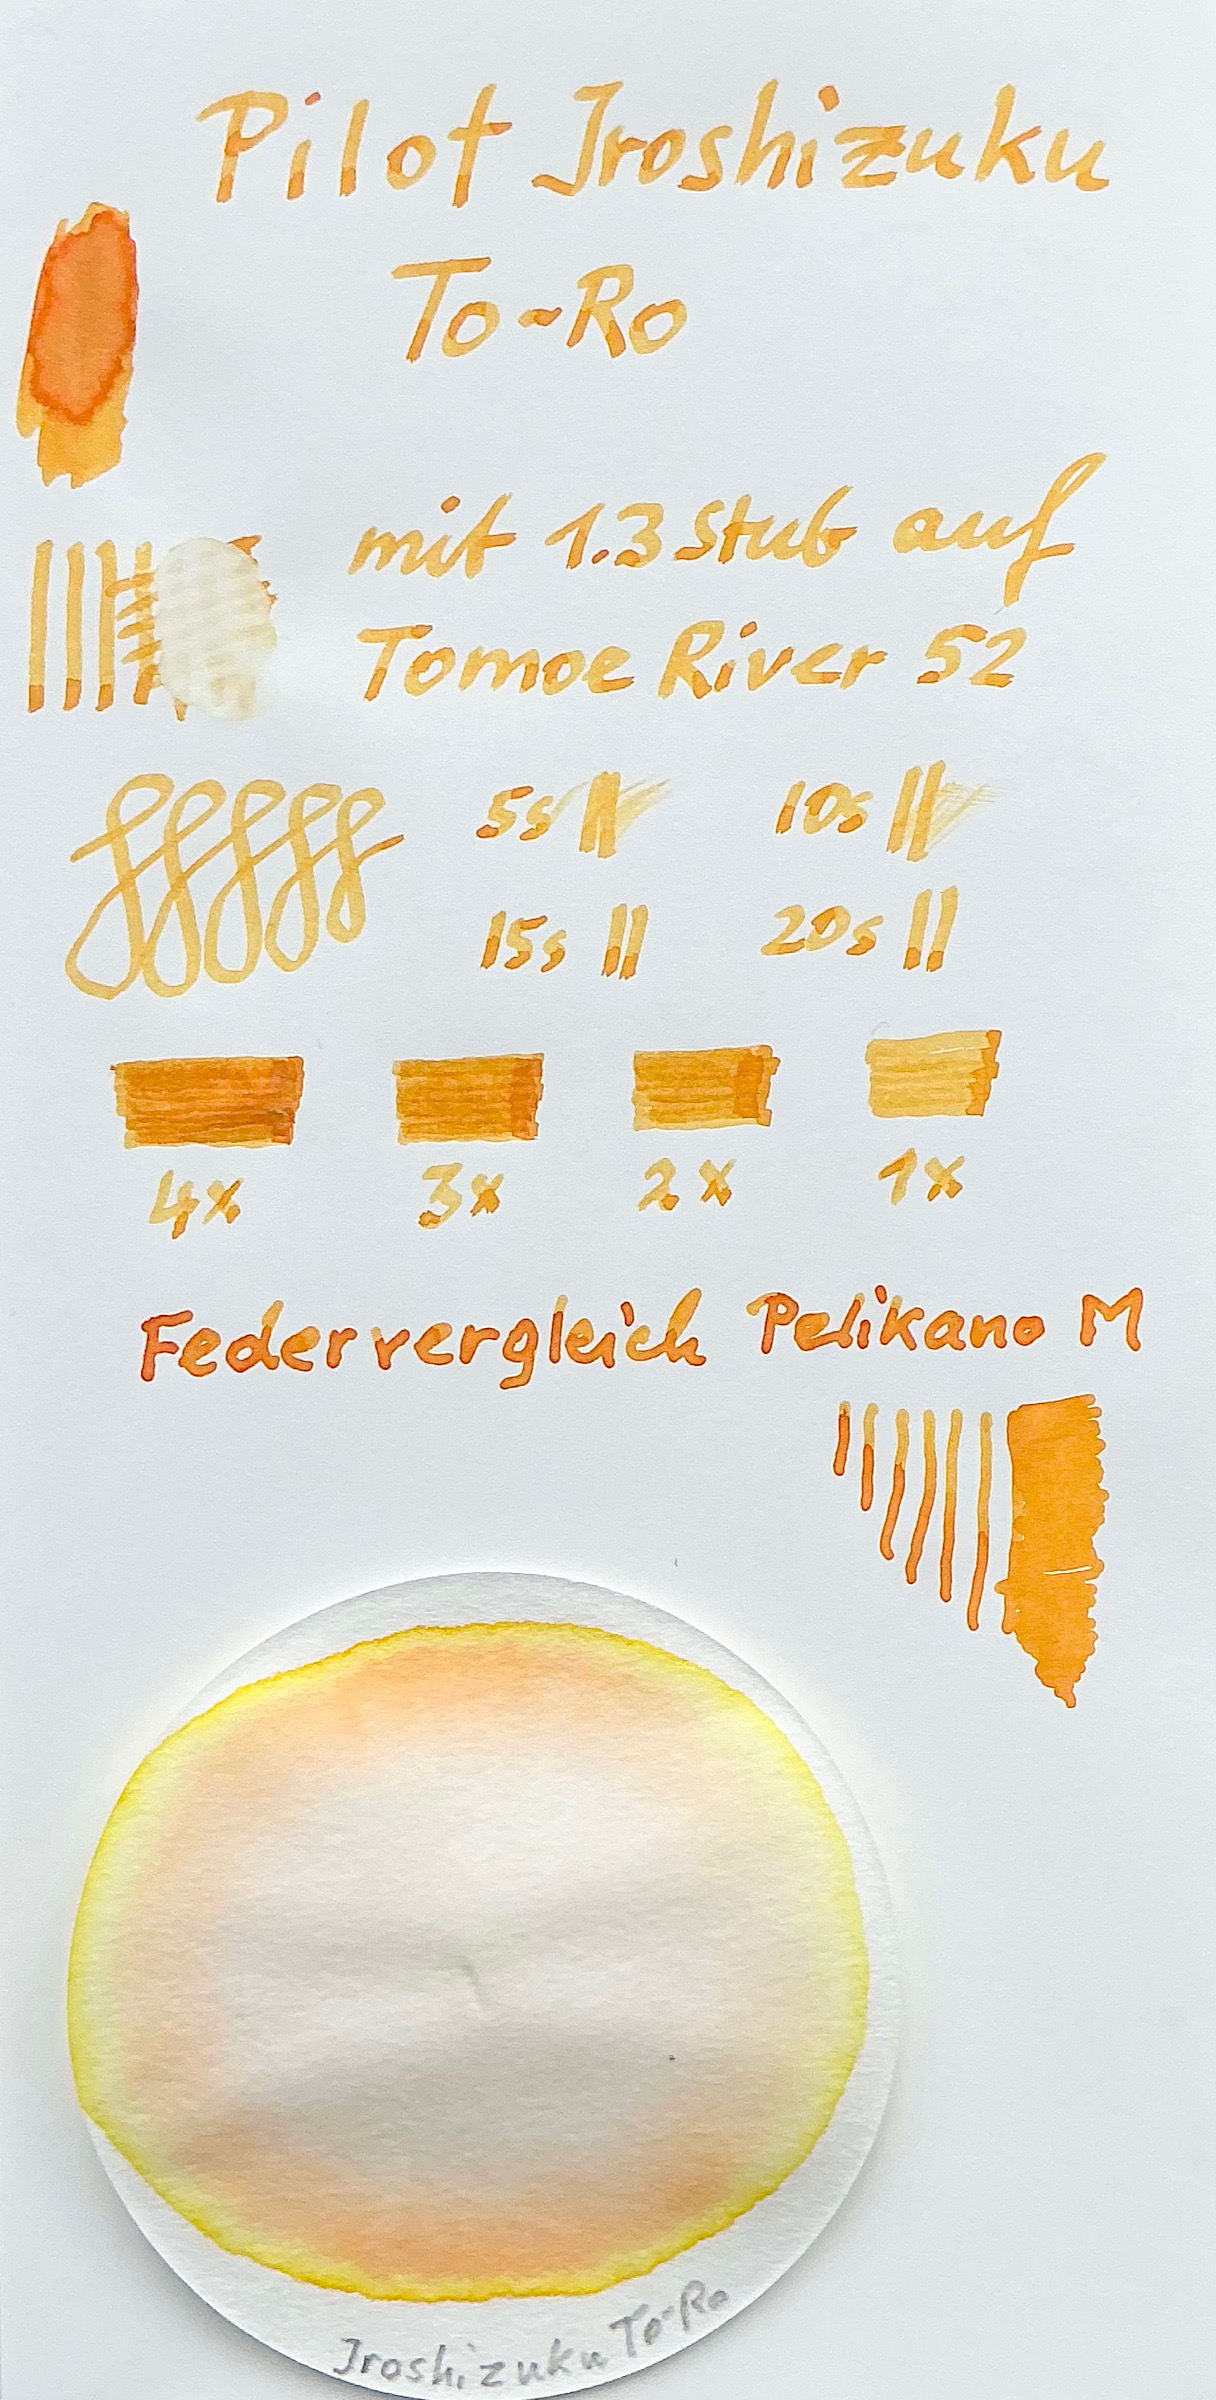 Pilot Iroshizuku
To-Ro
mit 1.3 Stub auf
Tomoe River 52
5s 10s
15s 20s
4x 3x 2x 1x
Federvergleich Pelikano M
Iroshizuku To-Ro